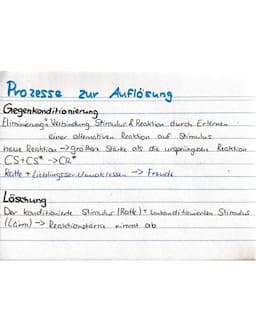 Prozesse zur Auflösung
Gegenkonditionierung
Eliminierung: Verbindung Stimulus & Reaktion durch Erlernen
einer alternativen Reaktion auf Stimulus
neue Reaktion -> größere Stärke als die ursprüngliche Reaktion
CS+CS* -> CR*
Ratte + Lieblingsserie/ -> Freude
Löschung
Der konditionierte Stimulus (Ratte) + unkonditionierten Stimulus
(Lärm) -> Reaktionsstärke nimmt ab